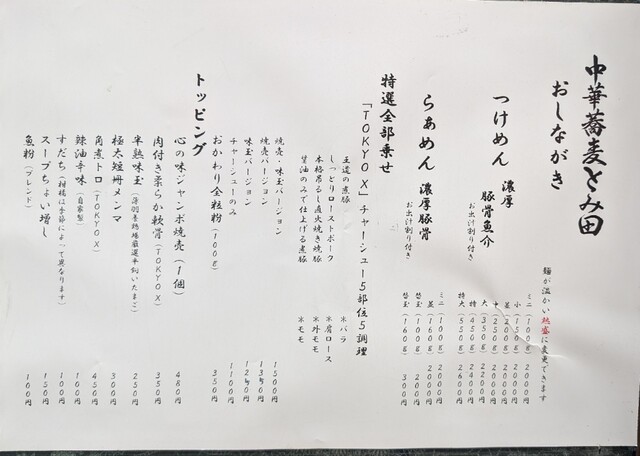 中華蕎麦とみ田
おしながき
麺が温かい熱盛に変更できます
つけめん 濃厚
豚骨魚介
お出汁割り付き
ミニ(100g) 2000円
小(150g) 2000円
並(200g) 2000円
中(250g) 2000円
大(350g) 2200円
特(450g) 2400円
特大(550g) 2600円
らぁめん 濃厚豚骨
お出汁割り付き
ミニ(100g) 2000円
並(160g) 2000円
替玉(100g) 200円
替玉(160g) 300円
特選全部乗せ
「TOKYO X」チャーシュー5部位5調理
王道の煮豚 *バラ
しっとりローストポーク *肩ロース
本格吊るし直火焼き焼豚 *外モモ
醤油のみで仕上げる煮豚 *モモ
焼売・味玉バージョン 1500円
焼売バージョン
味玉バージョン
チャーシューのみ 1100円
おかわり全粒粉(100g) 350円
トッピング
心の味ジャンボ焼売(1個) 480円
肉付き柔らか軟骨(TOKYO X) 350円
半熟味玉 250円
極太短冊メンマ 300円
角煮トロ(TOKYO X) 450円
辣油辛味(自家製) 100円
すだち(柑橘は季節によって異なります) 100円
スープちょい増し 150円
魚粉(ブレンド) 100円